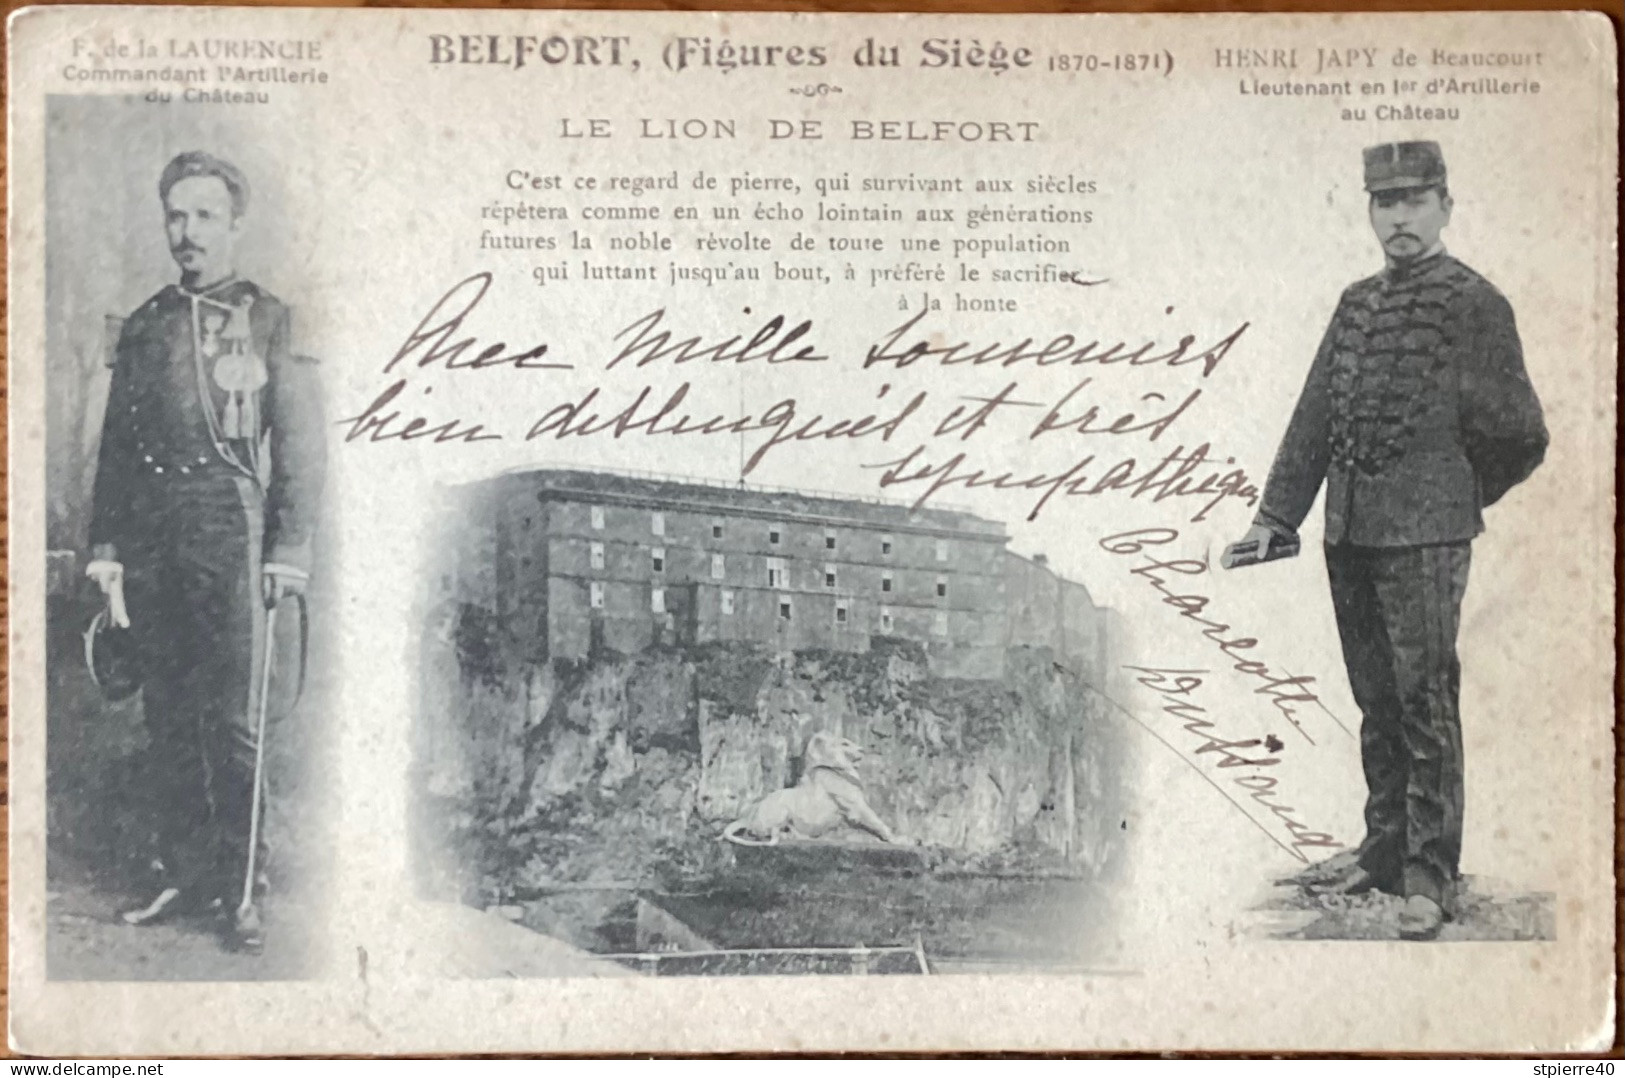 F. de la LAURENCIE
Commandant l'Artillerie
du Château
BELFORT, (Figures du Siège 1870-1871)
HENRI JAPY de Beaucourt
Lieutenant en 1er d'Artillerie
au Château
LE LION DE BELFORT
C'est ce regard de pierre, qui survivant aux siècles
répétera comme en un écho lointain aux générations
futures la noble révolte de toute une population
qui luttant jusqu'au bout, à préféré le sacrifier
à la honte
Avec mille souvenirs
bien distingués et très
sympathiques
Charlotte
stpierre40